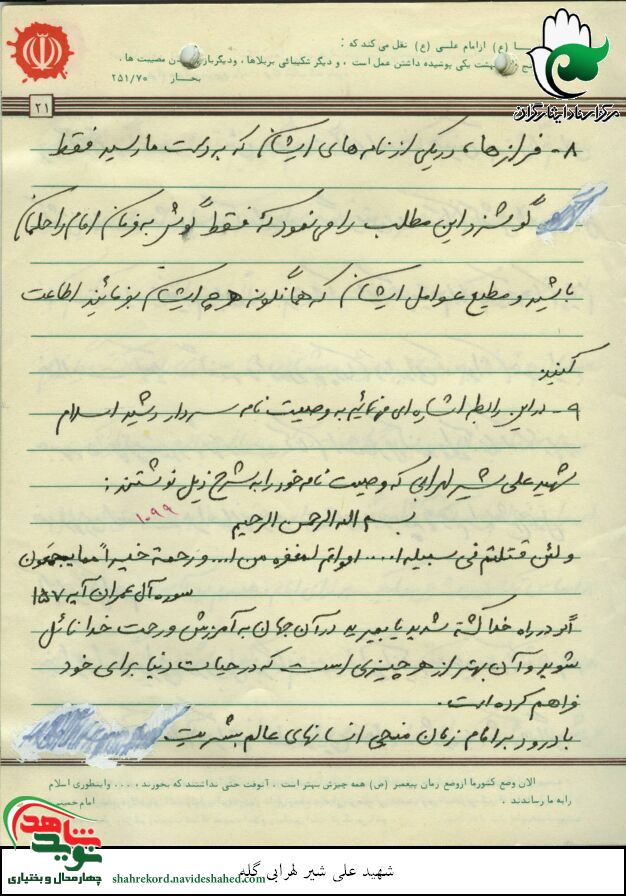 ا (ع) ازامام علی (ع) نقل می کند که :
بهشت یکی پوشیده داشتن عمل است ، و دیگر شکیبائی بربلاها ، ودیگرباز ن مصیبت ها .
بحار ۲۵۱/۷۰
مرکز اسناد ایثارگران
۲۱
۸- فرازها، در یکی از نامه های ایشان که به دست ما رسید فقط
گوشزد این مطلب را می نمود که فقط گوش به فرمان امام راحلمان
باشید و مطیع عوامل ایشان که هما نگونه هر چه ایشان بفرمائید اطاعت
کنید.
۹- در این رابطه اشاره ای می نمائیم به وصیت نامه سردار رشید اسلام
شهید علی شیر لهرابی که وصیت نامه خود را به شرح ذیل نوشتند :
۱۰۹۹
بسم الله الرحمن الرحیم
و لئن قتلتم فی سبیل ا.... اومتم لمغفره من ا... و رحمة خیراً مما یجمعون
سوره آل عمران آیه ۱۵۷
اگر در راه خدا کشته شدید یا بمیرید در آن جهان به آمرزش و رحمت خدا نائل
شوید و آن بهتر از هر چیزی است که در حیات دنیا برای خود
فراهم کرده است.
با درود بر امام زمان منجی انسانهای عالم بشریت
الان وضع کشورما ازوضع زمان پیغمبر (ص) همه چیزش بهتر است . آنوقت حتی نداشتند که بخورند ، ... واینطوری اسلام
رابه ما رساندند .
امام خمینی
نوید شاهد
چهارمحال و بختیاری
shahrekord.navideshahed.com
شهید علی شیر لهرابی گله